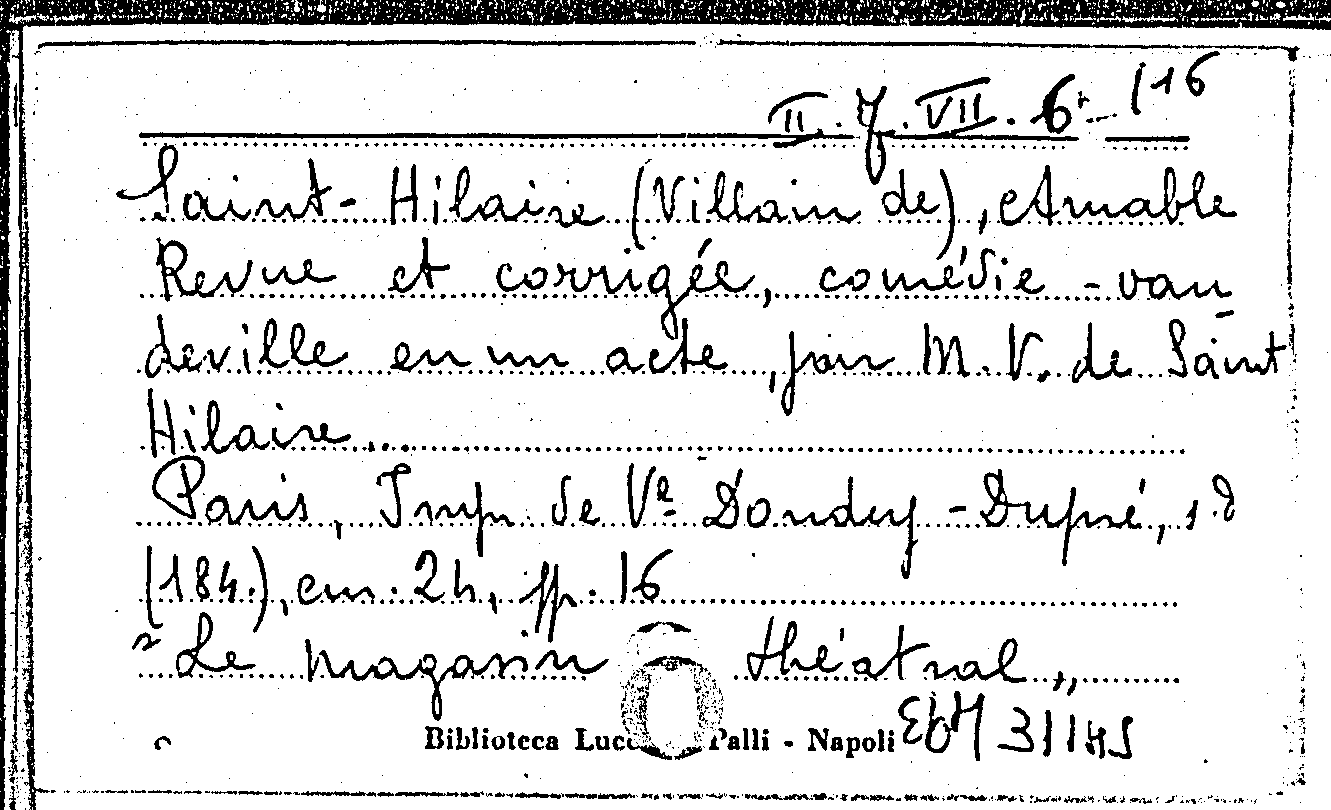 II. 7. VII. 6 /16
Saint-Hilaire (Villain de), Amable
Revue et corrigée, comédie-vau
deville en un acte, par M. V. de Saint
Hilaire...
Paris, Imp. de Ve Dondey-Dupré, s.d
(184.), cm. 24, pp. 16
"Le magasin théatral"
Biblioteca Lucc Palli - Napoli